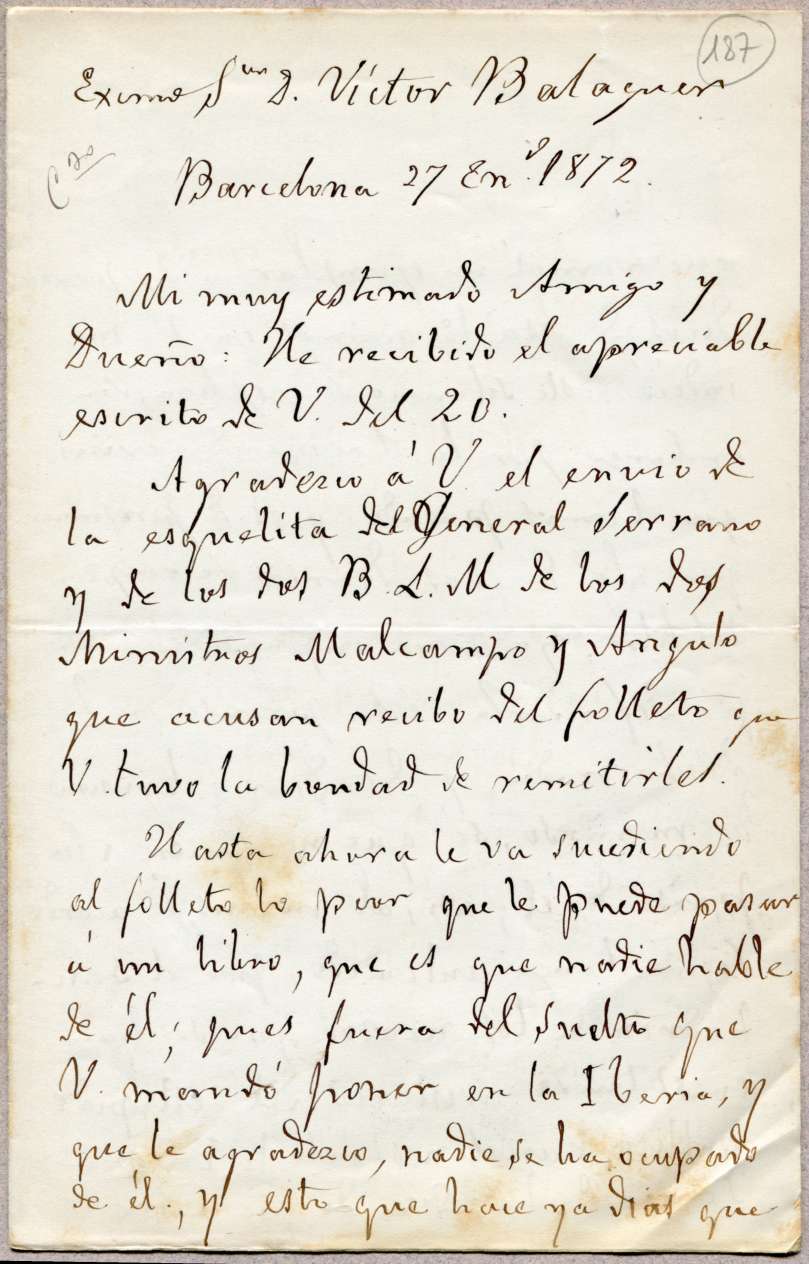 187
Excmo Sor D. Víctor Balaguer
Cdo
Barcelona 27 Eno. 1872.
Mi muy estimado Amigo y
Dueño: He recibido el apreciable
escrito de V. del 20.
Agradezco á V. el envio de
la esquelita del General Serrano
y de los dos B. L. M de los dos
Ministros Malcampo y Angulo
que acusan recibo del folleto que
V. tuvo la bondad de remitirles.
Hasta ahora le va sucediendo
al folleto lo peor que le puede pasar
á un libro, que es que nadie hable
de él; pues fuera del suelto que
V. mandó poner en la Iberia, y
que le agradezco, nadie se ha ocupado
de él., y esto que hace ya dias que